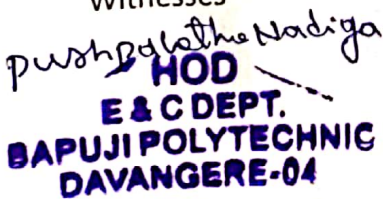 Witnesses
Pushpalatha Nadiga
HOD
E & C DEPT.
BAPUJI POLYTECHNIC
DAVANGERE-04